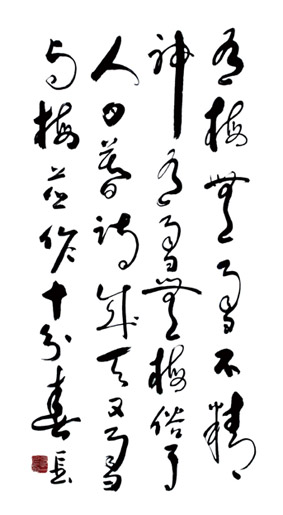 有梅無雪不精
神有雪無梅俗了
人日暮詩成天又雪
与梅並作十分春